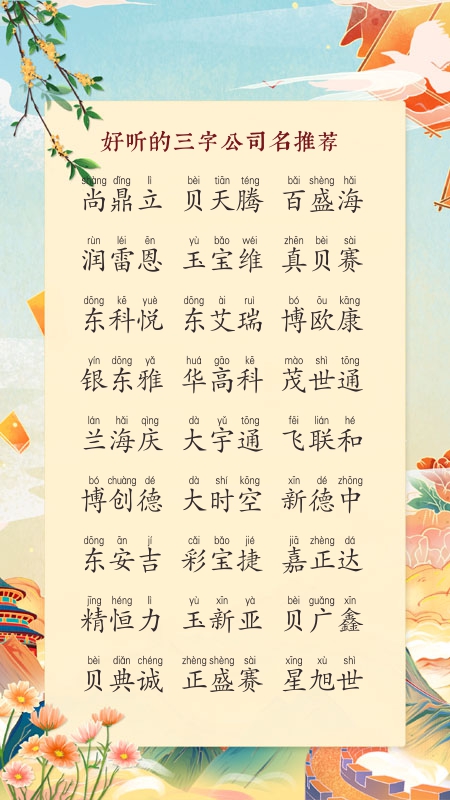 好听的三字公司名推荐
shàng dǐng lì bèi tiān téng bǎi shèng hǎi
尚鼎立 贝天腾 百盛海
rùn léi ēn yù bǎo wéi zhēn bèi sài
润雷恩 玉宝维 真贝赛
dōng kē yuè dōng ài ruì bó ōu kāng
东科悦 东艾瑞 博欧康
yín dōng yǎ huá gāo kē mào shì tōng
银东雅 华高科 茂世通
lán hǎi qìng dà yǔ tōng fēi lián hé
兰海庆 大宇通 飞联和
bó chuàng dé dà shí kōng xīn dé zhōng
博创德 大时空 新德中
dōng ān jí cǎi bǎo jié jiā zhèng dá
东安吉 彩宝捷 嘉正达
jīng héng lì yù xīn yà bèi guǎng xīn
精恒力 玉新亚 贝广鑫
bèi diǎn chéng zhèng shèng sài xīng xù shì
贝典诚 正盛赛 星旭世